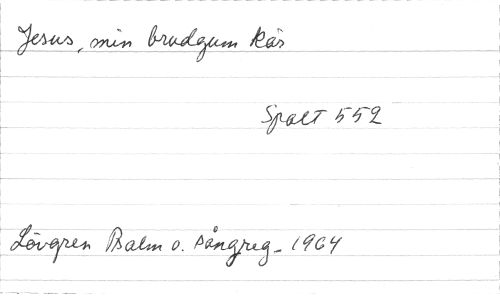 Jesus, min brudgum kär
Spalt 552
Lövgren Psalm o. sångreg. 1964